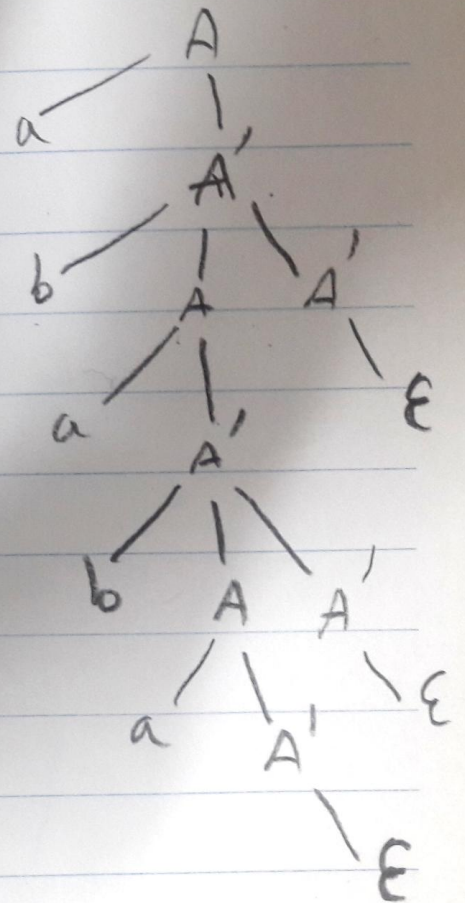 A
a
A'
b A A'
a A' ε
b A A'
a A' ε
ε